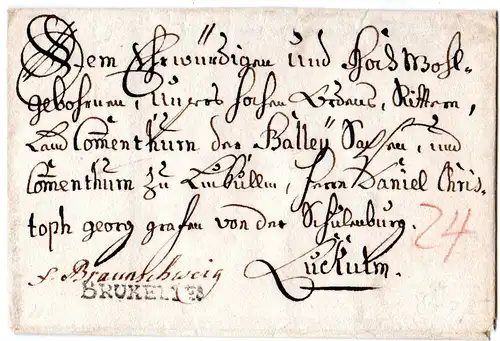 Dem Ehrwürdigen Und Hoch Wohl-
gebohrnen, Unsers hohen Ordens, Rittern,
Land Commenthurn der Balleÿ Sachsen, und
Commenthurn zu Lucullm, Herrn Daniel Chris-
toph georg grafen von der Schulenburg.
24
p. Braunschweig
Lucklum.
BRUXELLES